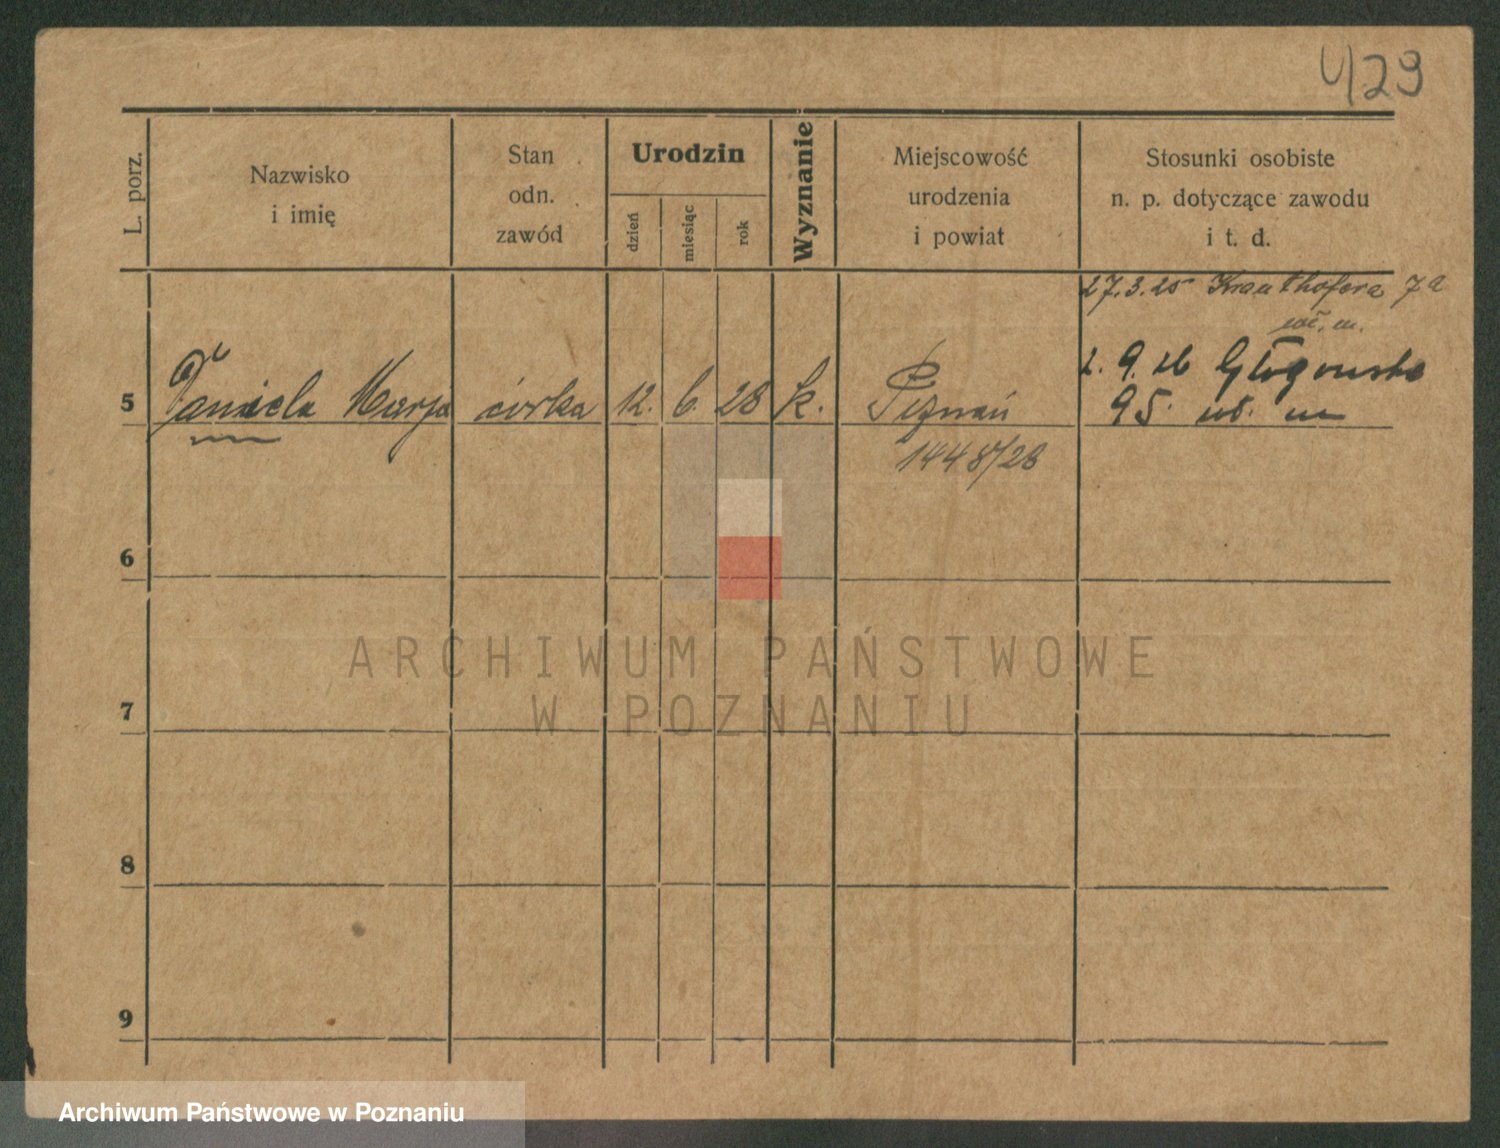 429
L. porz.
Nazwisko
i imię
Stan
odn.
zawód
Urodzin
dzień
miesiąc
rok
Wyznanie
Miejscowość
urodzenia
i powiat
Stosunki osobiste
n. p. dotyczące zawodu
i t. d.
27.3.25 Krauthofera 7a
2. 9. 26 Głogowska
5 Daniela Marja córka 12. 6. 28 k. Poznań 95.
1448/28
6
7
8
9
ARCHIWUM PAŃSTWOWE
W POZNANIU
Archiwum Państwowe w Poznaniu